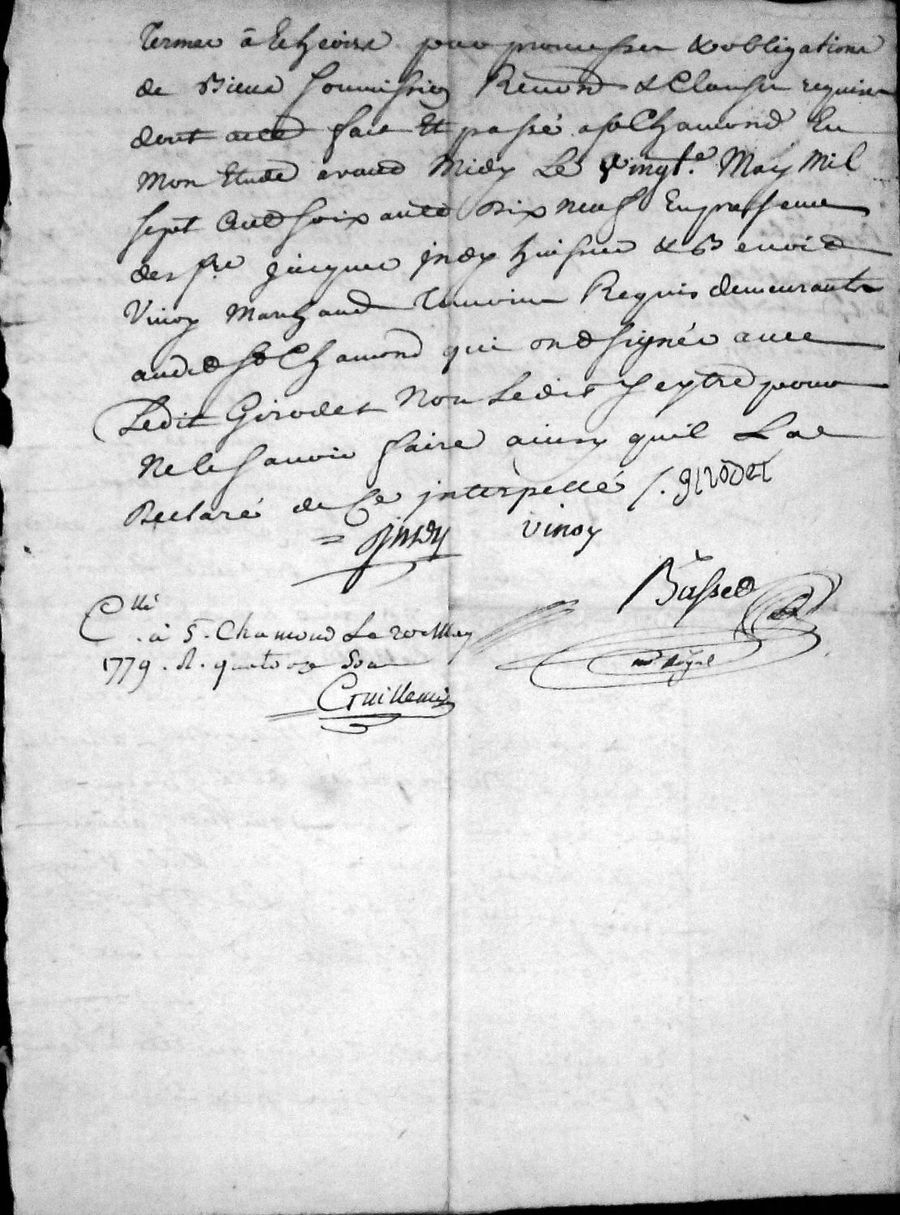 termes à Echeoire par promesses & obligations
de Biens Soumission Renond & Clauses requises
dont acte fait Et passé a St Chamond En
mon Etude avant Midy Le vingt.e May Mil
sept Cent soixante Dix neuf En presence
des sr. jacques jndy huissier & Benoit
Vinoy Marchand temoins Requis demeurants
audit St Chamond qui ont signée avec
Ledit Girodet Non Ledit Seytre pour
Ne le savoir faire ainsy quil La
Declaré de Ce jnterpellé /. girodet
jndy vinoy
Busseo
C.lle à S. Chamond Le 20e May
1779. R. quatorze Sou
no.re Royal
Guillemin